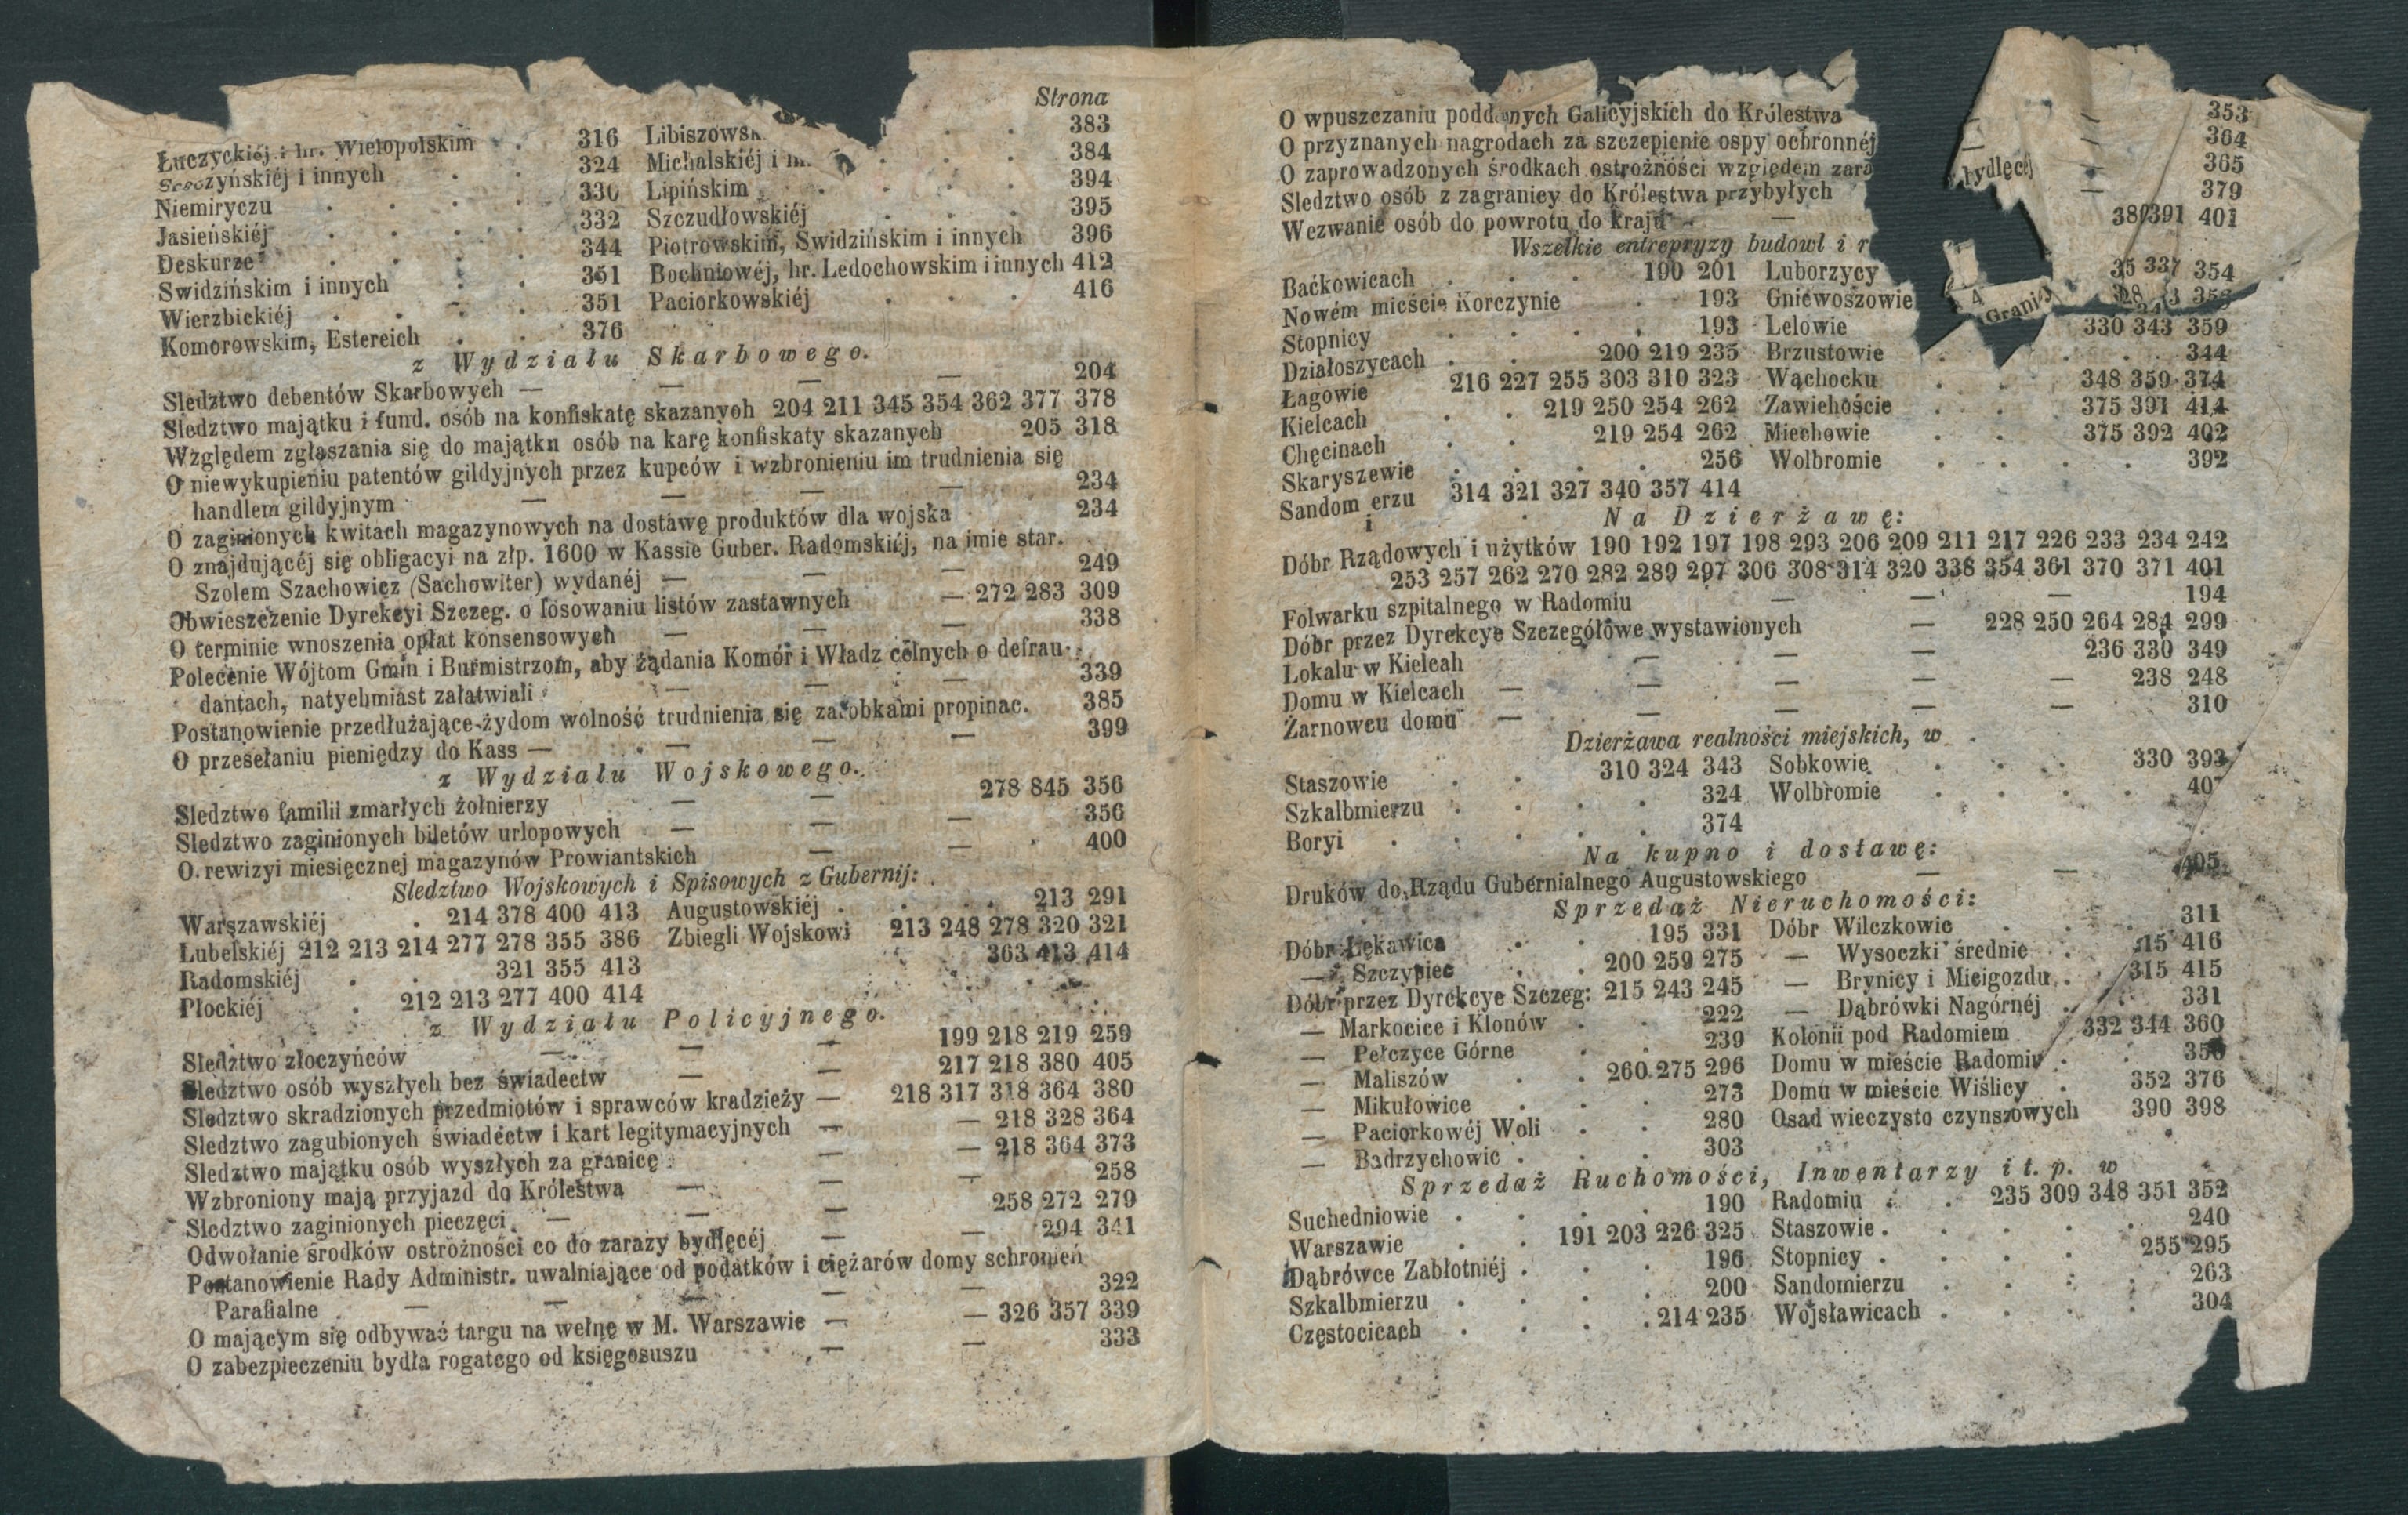 Strona
Łuczyckiéj i hr. Wielopolskim . 316 Libiszowsk . 383
i innych . . 324 Michalskiéj i . . . 384
Niemiryczu . . . . 330 Lipińskim . . . . 394
Jasieńskiéj . . . . 332 Szczudłowskiéj . . . 395
Deskurze . . . . 344 Piotrowskim, Swidzińskim i innych 396
Swidzińskim i innych . . 351 Bochniowéj, hr. Ledochowskim i innych 412
Wierzbickiéj . . . . 351 Paciorkowskiéj . . . 416
Komorowskim, Estereich . . 376
z Wydziału Skarbowego.
Sledztwo debentów Skarbowych — — — — 204
Sledztwo majątku i fund. osób na konfiskatę skazanych 204 211 345 354 362 377 378
Względem zgłaszania się do majątku osób na karę konfiskaty skazanych 205 318
O niewykupieniu patentów gildyjnych przez kupców i wzbronieniu im trudnienia się
handlem gildyjnym — — — — 234
O zaginionych kwitach magazynowych na dostawę produktów dla wojska 234
O znajdującéj się obligacyi na złp. 1600 w Kassie Guber. Radomskiéj, na imie star.
Szolem Szachowicz (Sachowiter) wydanéj — — — 249
Obwieszczenie Dyrekcyi Szczeg. o losowaniu listów zastawnych — 272 283 309
O terminie wnoszenia opłat konsensowych — — — 338
Polecenie Wójtom Gmin i Burmistrzom, aby żądania Komór i Władz celnych o defrau-
dantach, natychmiast załatwiali — — — 339
Postanowienie przedłużające żydom wolność trudnienia się zarobkami propinac. 385
O przesełaniu pieniędzy do Kass — — — — 399
z Wydziału Wojskowego.
Sledztwo familii zmarłych żołnierzy — — 278 845 356
Sledztwo zaginionych biletów urlopowych — — — 356
O rewizyi miesięcznej magazynów Prowiantskich — — 400
Sledztwo Wojskowych i Spisowych z Gubernij:
Warszawskiéj . 214 378 400 413 Augustowskiéj . . . 213 291
Lubelskiéj 212 213 214 277 278 355 386 Zbiegli Wojskowi 213 248 278 320 321
Radomskiéj . . 321 355 413 363 413 414
Płockiéj . 212 213 277 400 414
z Wydziału Policyjnego.
Sledztwo złoczyńców — — — 199 218 219 259
Sledztwo osób wyszłych bez świadectw — — 217 218 380 405
Sledztwo skradzionych przedmiotów i sprawców kradzieży — 218 317 318 364 380
Sledztwo zagubionych świadectw i kart legitymacyjnych — — 218 328 364
Sledztwo majątku osób wyszłych za granicę — — 218 364 373
Wzbroniony mają przyjazd do Królestwa — — — 258
Sledztwo zaginionych pieczęci — — — 258 272 279
Odwołanie środków ostrożności co do zarazy bydlęcéj — — 294 341
Postanowienie Rady Administr. uwalniające od podatków i ciężarów domy schronień
Parafialne — — — — — 322
O mającym się odbywać targu na wełnę w M. Warszawie — — 326 357 339
O zabezpieczeniu bydła rogatego od księgosuszu — — 333
O wpuszczaniu poddanych Galicyjskich do Królestwa 353
O przyznanych nagrodach za szczepienie ospy ochronnéj — 364
O zaprowadzonych środkach ostrożności względem zara bydlęcéj 365
Sledztwo osób z zagranicy do Królestwa przybyłych — 379
Wezwanie osób do powrotu do kraju — — 391 401
Wszelkie entrepryzy budowl i r
Baćkowicach . . . 190 201 Luborzycy 337 354
Nowém mieście Korczynie . 193 Gniewoszowie Grani
Stopnicy . . . . 193 Lelowie 330 343 359
Działoszycach . . 200 219 235 Brzustowie . . . 344
Łagowie 216 227 255 303 310 323 Wąchocku . . 348 359 374
Kielcach . . 219 250 254 262 Zawichoście . . 375 391 414
Chęcinach . . 219 254 262 Miechowie . . 375 392 402
Skaryszewie . . . . 256 Wolbromie . . . . 392
Sandom erzu 314 321 327 340 357 414
i
Na Dzierżawę:
Dóbr Rządowych i użytków 190 192 197 198 293 206 209 211 217 226 233 234 242
253 257 262 270 282 289 297 306 308 314 320 338 354 361 370 371 401
Folwarku szpitalnego w Radomiu — — — 194
Dóbr przez Dyrekcye Szczegółowe wystawionych — 228 250 264 284 299
Lokalu w Kielcah — — — 236 330 349
Domu w Kielcach — — — — — 238 248
Żarnowcu domu — — — — — 310
Dzierżawa realności miejskich, w
Staszowie . . 310 324 343 Sobkowie . . . 330 393
Szkalbmierzu . . . . 324 Wolbromie . . . .
Boryi . . . . . 374
Na kupno i dostawę:
Druków do Rządu Gubernialnego Augustowskiego — — 405
Sprzedaż Nieruchomości:
Dóbr Łękawica . . 195 331 Dóbr Wilczkowic . . . 311
— Szczypiec . . 200 259 275 — Wysoczki średnie . 315 416
Dóbr przez Dyrekcye Szczeg: 215 243 245 — Brynicy i Micigozdu . 315 415
— Markocice i Klonów . . 222 — Dąbrówki Nagórnéj . . 331
— Pełczyce Górne . . 239 Kolonii pod Radomiem 332 344 360
— Maliszów . . 260 275 296 Domu w mieście Radomiu . .
— Mikułowice . . . 273 Domu w mieście Wiślicy . 352 376
— Paciorkowéj Woli . . 280 Osad wieczysto czynszowych 390 398
— Badrzychowic . . . 303
Sprzedaż Ruchomości, Inwentarzy i t. p. w
Suchedniowie . . . . 190 Radomiu . . 235 309 348 351 352
Warszawie . . 191 203 226 325 Staszowie . . . . . 240
Dąbrówce Zabłotniéj . . . 196 Stopnicy . . . . 255 295
Szkalbmierzu . . . . 200 Sandomierzu . . . . 263
Częstocicach . . . . 214 235 Wojsławicach . . . . 304